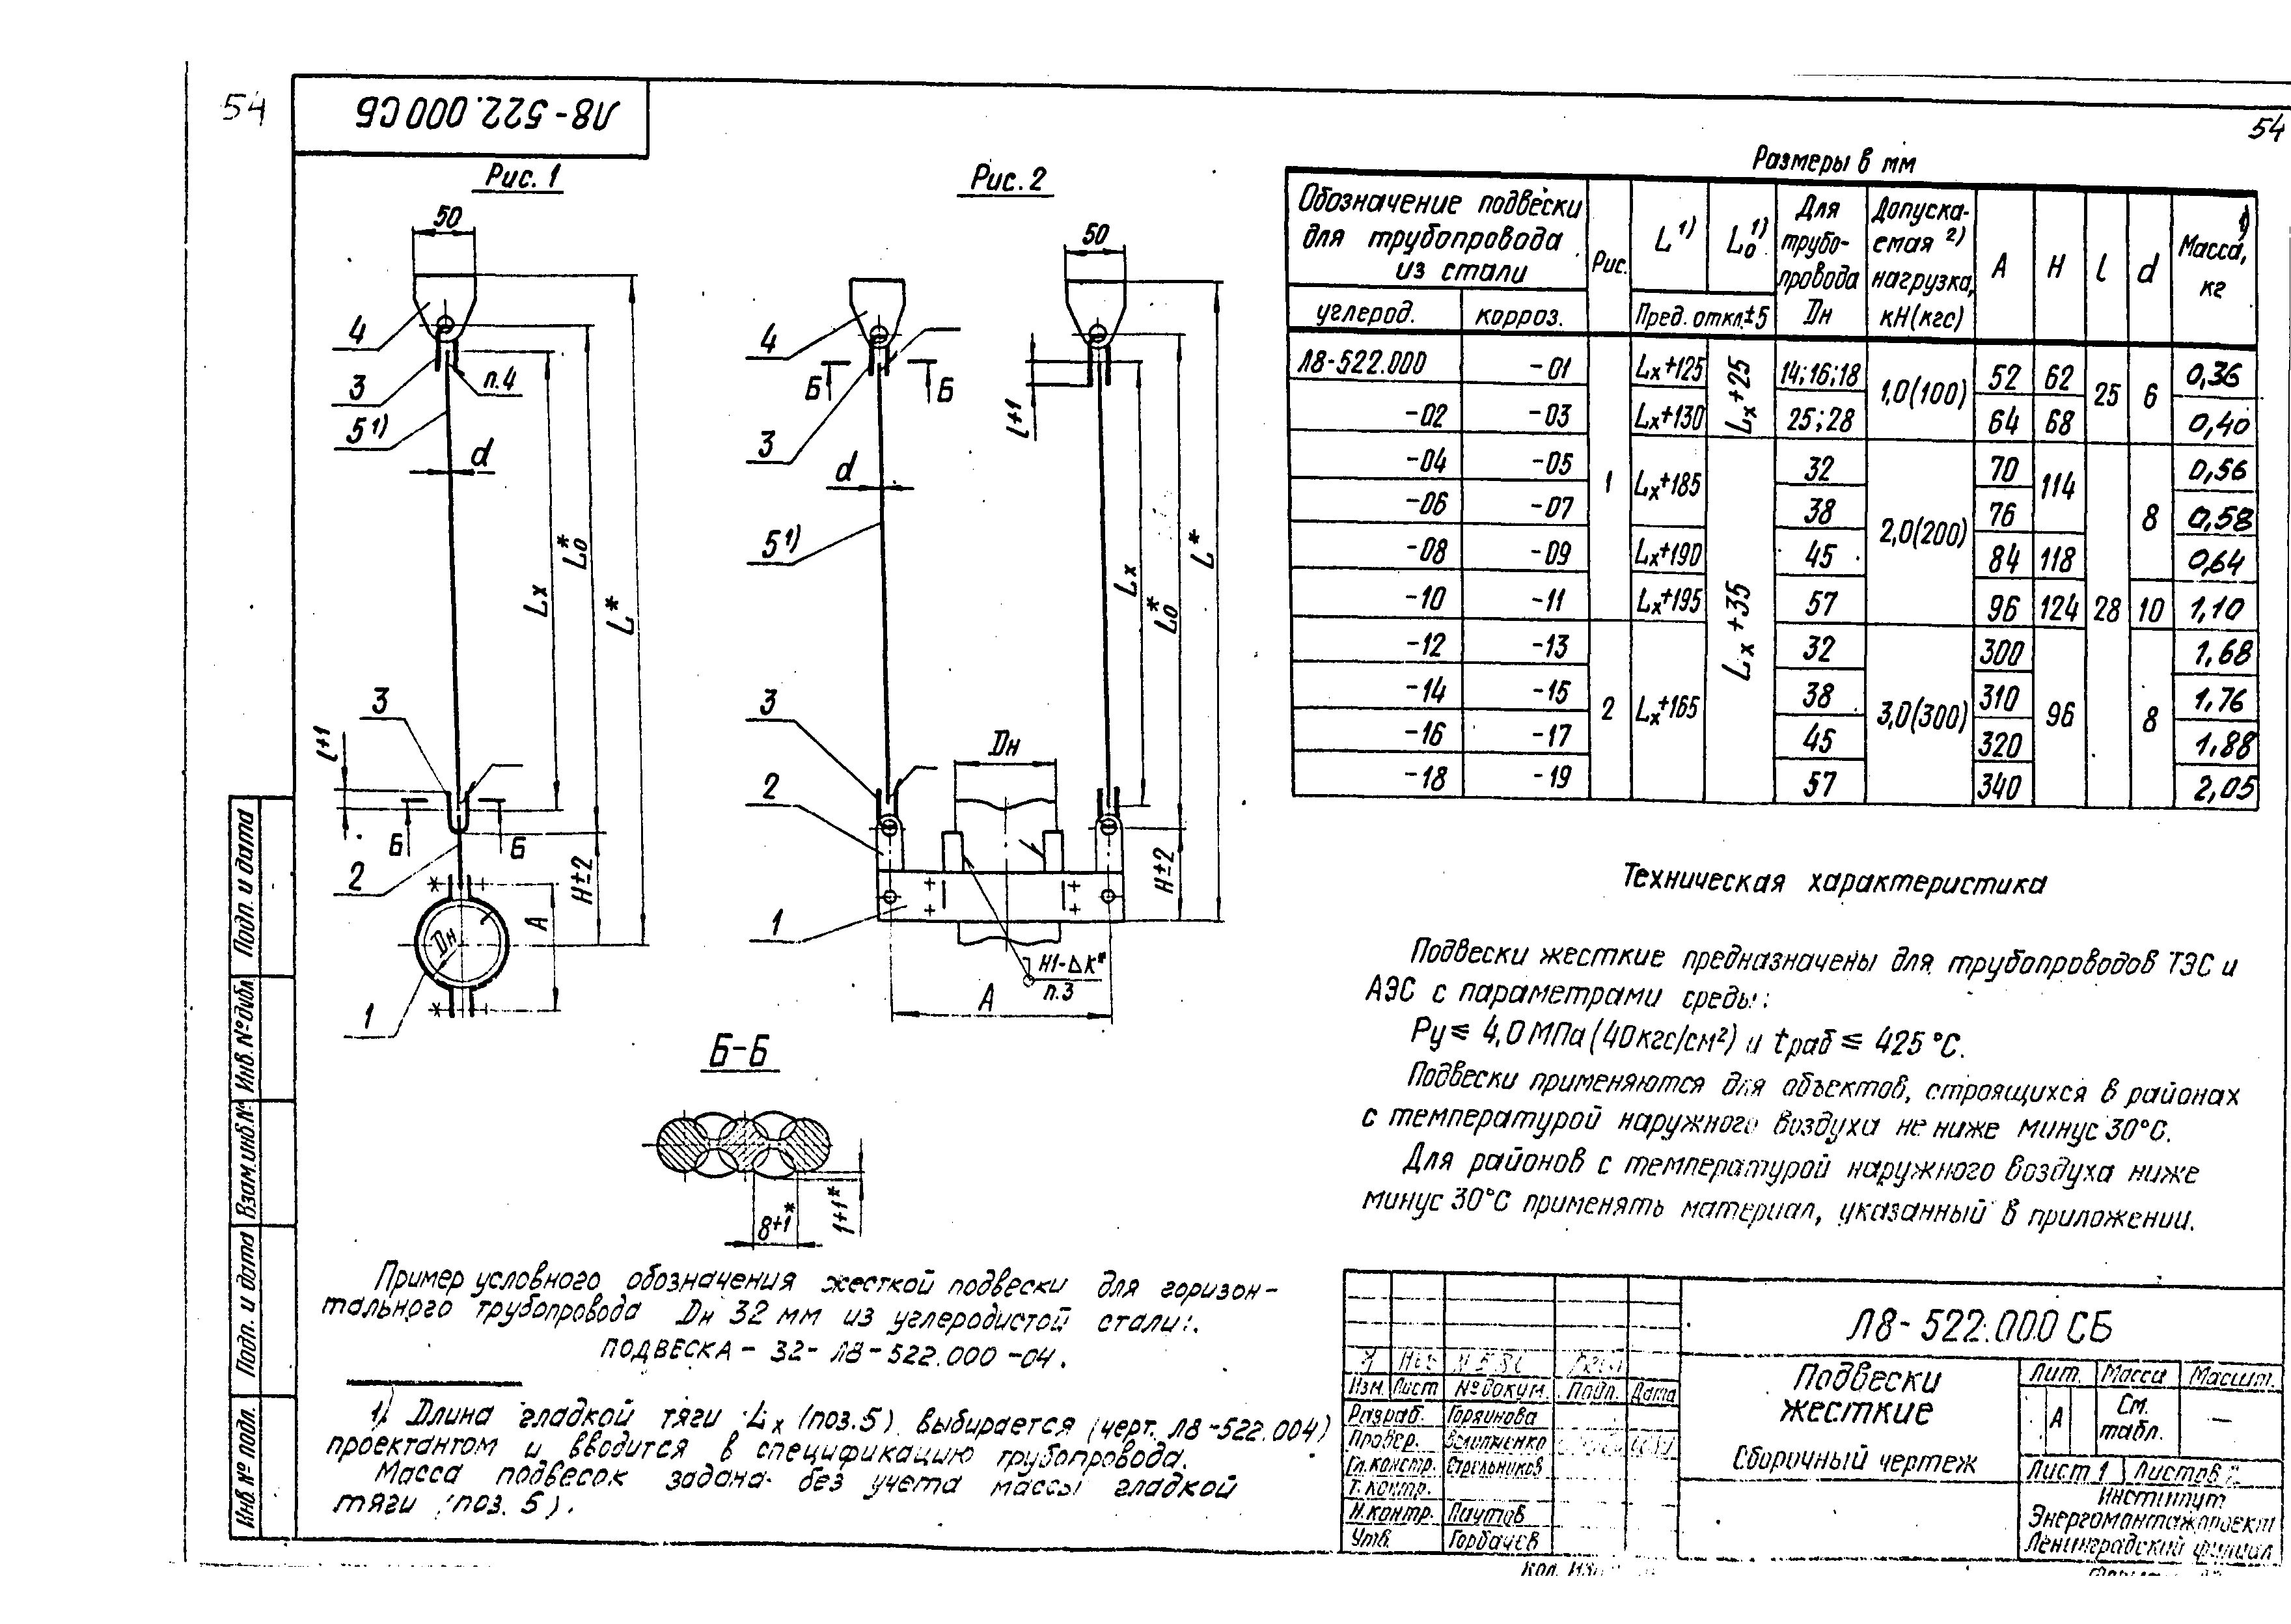 54
Л8-522.000 СБ
54
Рис. 1
50
4
3
п.4
5¹⁾
d
Lx
L₀*
L*
3
l+1
Б
Б
2
H±2
A
Dн
1
Рис. 2
50
4
Б
Б
3
l+1
d
5¹⁾
Lx
L₀*
L*
3
Dн
2
1
H±2
Н1-△К*
п.3
A
Б-Б
8+1*
1+1*
Размеры в мм
Обозначение подвески для трубопровода из стали | Рис. | L¹⁾ | L₀¹⁾ | Для трубо-провода Dн | Допуска-емая ²⁾ нагрузка, кН(кгс) | A | H | l | d | Масса, ¹⁾ кг
углерод. | корроз. | Пред. откл. ±5
Л8-522.000 | -01 | 1 | Lx+125 | Lx+25 | 14;16;18 | 1,0(100) | 52 | 62 | 25 | 6 | 0,36
-02 | -03 | Lx+130 | 25;28 | 64 | 68 | 0,40
-04 | -05 | Lx+185 | Lx+35 | 32 | 2,0(200) | 70 | 114 | 28 | 8 | 0,56
-06 | -07 | 38 | 76 | 0,58
-08 | -09 | Lx+190 | 45 | 84 | 118 | 0,64
-10 | -11 | Lx+195 | 57 | 96 | 124 | 10 | 1,10
-12 | -13 | 2 | Lx+165 | 32 | 3,0(300) | 300 | 96 | 8 | 1,68
-14 | -15 | 38 | 310 | 1,76
-16 | -17 | 45 | 320 | 1,88
-18 | -19 | 57 | 340 | 2,05
Техническая характеристика
Подвески жесткие предназначены для трубопроводов ТЭС и
АЭС с параметрами среды:
Ру ≤ 4,0 МПа (40 кгс/см²) и tраб ≤ 425 °С.
Подвески применяются для объектов, строящихся в районах
с температурой наружного воздуха не ниже минус 30°С.
Для районов с температурой наружного воздуха ниже
минус 30°С применять материал, указанный в приложении.
Пример условного обозначения жесткой подвески для горизон-
тального трубопровода Dн 32 мм из углеродистой стали:
ПОДВЕСКА - 32- Л8-522.000 -04.
1) Длина гладкой тяги Lx (поз.5) выбирается (черт. Л8-522.004)
проектантом и вводится в спецификацию трубопровода.
Масса подвесок задана без учета массы гладкой
тяги (поз. 5).
Подп. и дата
Инв. № дубл.
Взам. инв. №
Подп. и дата
Инв. № подл.
Изм. Лист № докум. Подп. Дата
Разраб. Горяинова
Провер.
Гл. констр. Стрельников
Т. контр.
Н. контр. Паутов
Утв. Горбачев
Л8-522.000 СБ
Подвески
жесткие
Сборочный чертеж
Лит. Масса Масшт.
А См. табл. —
Лист 1 Листов
Институт
Энергомонтажпроект
Ленинградский филиал
Кол.